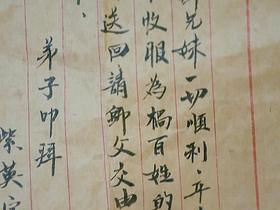 兄妹一切順利，年
收服為禍百姓的
送回請鄉父交由
弟子叩拜
紫英